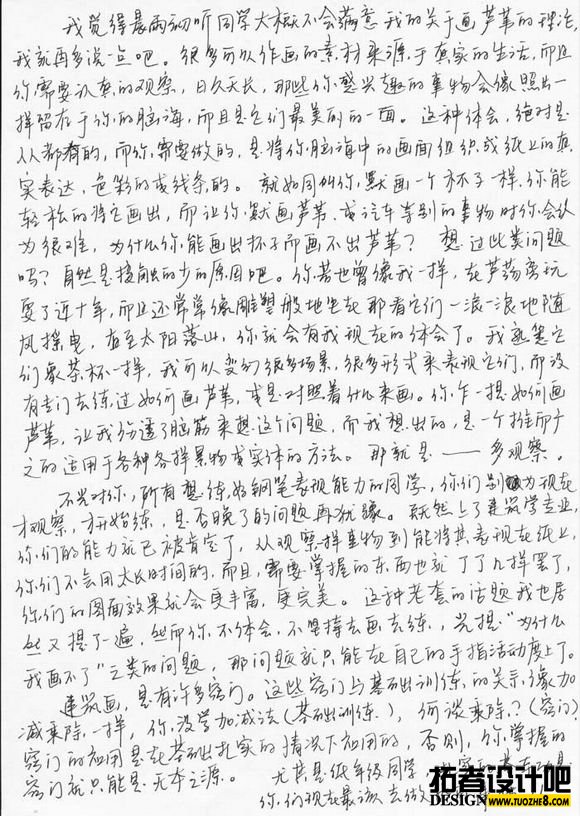 我觉得最两初听同学大概不会满意我的关于画芦苇的理论,
我就再多说一点吧。很多可以作画的素材来源于真实的生活,而且
你需要认真的观察,日久天长,那些你感兴趣的事物会像照片一
样留在于你的脑海,而且是它们最美的的一面。这种体会,绝对是
人人都有的,而你需要做的,是将你脑海中的画面组织成纸上的真
实表达,色彩的或线条的。就如同叫你默画一个杯子一样,你能
轻松的将它画出,而让你默画芦苇、或汽车等别的事物时你会认
为很难,为什么你能画出杯子而画不出芦苇?想过此类问题
吗?自然是接触的少的原因吧。你若也曾像我一样,在芦荡旁玩
耍了近十年,而且还常常像雕塑般地坐在那看它们一浪一浪地随
风摇曳,直至太阳落山,你就会有我现在的体会了。我熟悉它
们像茶杯一样,我可以变幻很多场景,很多形式来表现它们,而没
有专门去练过如何画芦苇,或是对照着什么来画。你乍一提如何画
芦苇,让我伤透了脑筋来想这个问题,而我想出的,是一个推而广
之的适用于各种各样景物或实体的方法。那就是——多观察。
不光对你,所有想练好钢笔表现能力的同学,你们别为现在
才观察,才开始练,是否晚了的问题再犹豫。既然上了建筑学专业,
你们的能力就已被肯定了,从观察样事物到能将其表现在纸上,
你们不会用太长时间的,而且,需要掌握的东西也就了了几样罢了,
你们的图面效果就会更丰富,更完美。这种老套的话题我也居
然又提了一遍,然而你不体会,不坚持去画去练,光提“为什么
我画不了”之类的问题,那问题就只能在自己的手指活动度上了。
建筑画,是有许多窍门。这些窍门与基础训练的关系像加
减乘除一样,你没学加减法(基础训练),何谈乘除?(窍门)
窍门的初用是在基础扎实的情况下初用的,否则,你掌握的
窍门就只能是无本之源。尤其是低年级同学,
你们现在最该去做
拓者设计吧
DESIGN WWW.TUOZHE8.COM